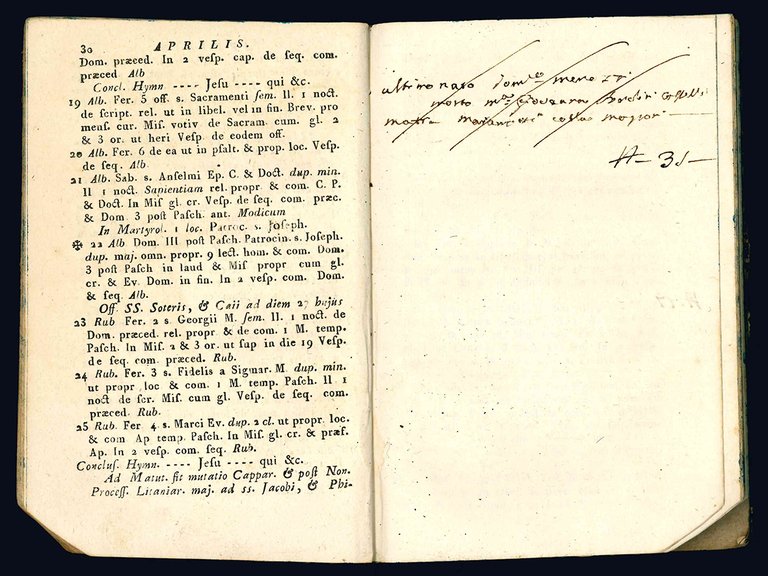 30 APRILIS.
Dom. præced. In 2 vesp. cap. de seq. com.
præced Alb
Concl. Hymn ---- Jesu ---- qui &c.
19 Alb. Fer. 5 off. s. Sacramenti sem. ll. 1 noct.
de script. rel. ut in libel. vel in fin. Brev. pro
mens. cur. Mis. votiv de Sacram. cum. gl. 2
& 3 or. ut heri Vesp. de eodem off.
20 Alb. Fer. 6 de ea ut in psalt. & prop. loc. Vesp.
de seq. Alb.
21 Alb. Sab. s. Anselmi Ep. C. & Doct. dup. min.
ll 1 noct. Sapientiam rel. propr & com. C. P.
& Doct. In Mis gl. cr. Vesp. de seq. com. præc.
& Dom 3 post Pasch. ant. Modicum
In Martyrol. 1 loc. Patroc. s. Joseph.
✠ 22 Alb Dom. III post Pasch. Patrocin. s. Joseph.
dup. maj. omn. propr. 9 lect. hom. & com. Dom.
3 post Pasch in laud & Mis propr cum gl.
cr. & Ev. Dom. in fin. In 2 vesp. com. Dom.
& seq. Alb.
Off. SS. Soteris, & Caii ad diem 27 hujus
23 Rub Fer. 2 s. Georgii M. sem. ll. 1 noct. de
Dom. præced. rel. propr & de com. 1 M. temp.
Pasch. In Mis. 2 & 3 or. ut sup in die 19 Vesp.
de seq. com. præced. Rub.
24 Rub. Fer. 3 s. Fidelis a Sigmar. M. dup. min.
ut propr. loc. & com. 1 M. temp. Pasch. ll. 1
noct de scr. Mis. cum gl. Vesp. de seq. com.
præced. Rub.
25 Rub. Fer. 4 s. Marci Ev. dup. 2 cl. ut propr. loc.
& com Ap temp. Pasch. In Mis. gl. cr. & præf.
Ap. In 2 vesp. com. seq. Rub.
Conclus. Hymn. ---- Jesu ---- qui &c.
Ad Matut. fit mutatio Cappar. & post Non.
Process. Litaniar. maj. ad ss. Jacobi, & Phi-
ultimo nato
morto